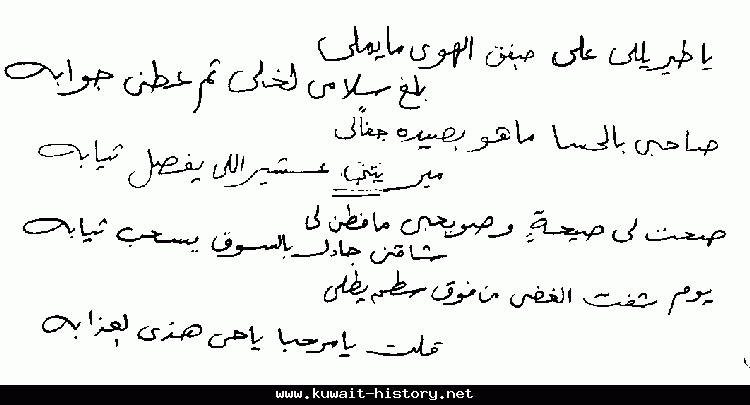 يا طير يللي على صفق الهوى ما يملي
بلغ سلامي لخلي ثم عطني جوابه
صاحبي بالحسا ما هو بصيده جفالي
مير عشير اللي يفصل ثيابه
صحت لي صيحةٍ وصويحبي ما فطن لي
شاقني جادل بالسوق يسحب ثيابه
يوم شفت الغضي من فوق سطحه يطلي
قلت يا مرحبا ياحي هذي العذابه
www.kuwait-history.net